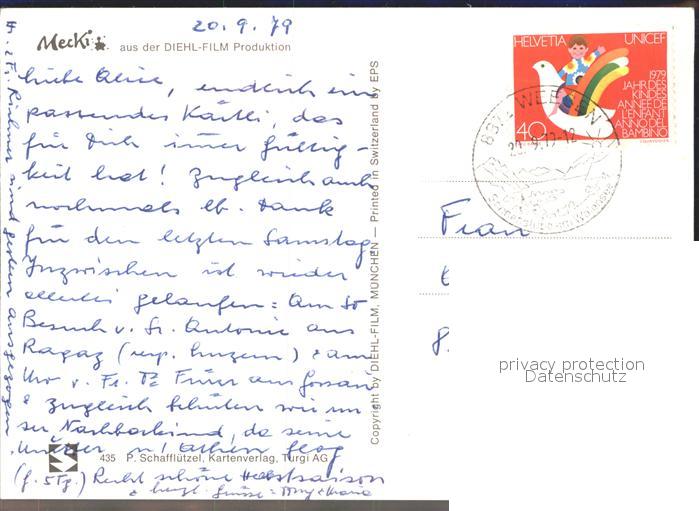 20.9.79
Mecki aus der DIEHL-FILM Produktion
Liebe Alice, endlich ein
passendes Kärtli, das
für Dich immer Gültig-
keit hat! Zugleich auch
nochmals lb. Dank
für den letzten Samstag.
Inzwischen ist wieder
allerlei gelaufen: Am So
Besuch v. Sr. Antonie aus
Ragaz (resp. Luzern) & am
v. Fr. aus Gossau
& Zugleich hüten wir un
ser Nachbarkind, da seine
Mutter n/ Athen flog
(f. 5 Tg.) Recht schöne Herbstsaison
& herzl. Grüsse
sind gestern ausgezogen
435 P. Schafflützel, Kartenverlag, Turgi AG
Copyright by DIEHL-FILM, MÜNCHEN — Printed in Switzerland by EPS
HELVETIA UNICEF
1979
JAHR DES
KINDES
ANNÉE DE
L'ENFANT
ANNO DEL
BAMBINO
40
WEESEN
20.9.79-12
Frau
privacy protection
Datenschutz